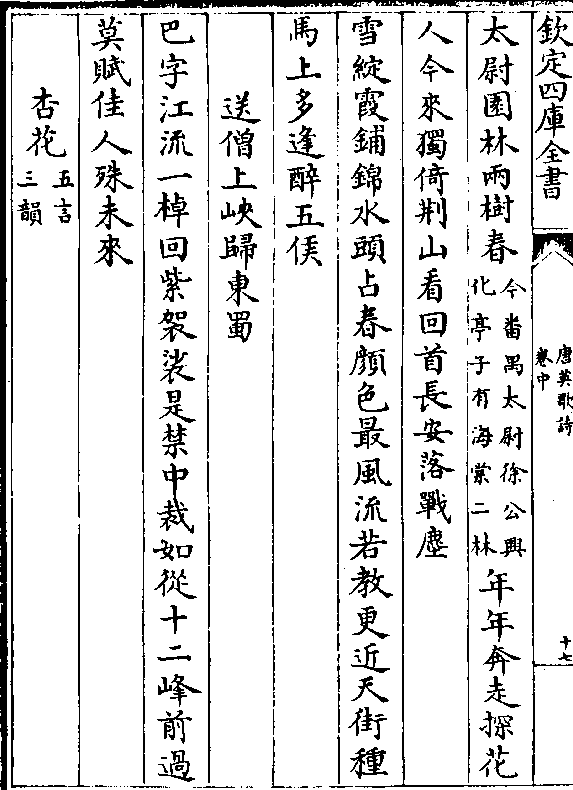 欽定四庫全書
唐英歌詩
卷中
十七
太尉園林兩樹春
今畨禺太尉徐公興
化亭子有海棠二林
年年奔走探花
人今來獨倚荆山看回首長安落戰塵
雪綻霞鋪錦水頭占春顔色最風流若教更近天街種
馬上多逢醉五侯
送僧上峽歸東蜀
巴字江流一棹回紫袈裟是禁中裁如從十二峰前過
莫賦佳人殊未來
杏花
五言
三韻